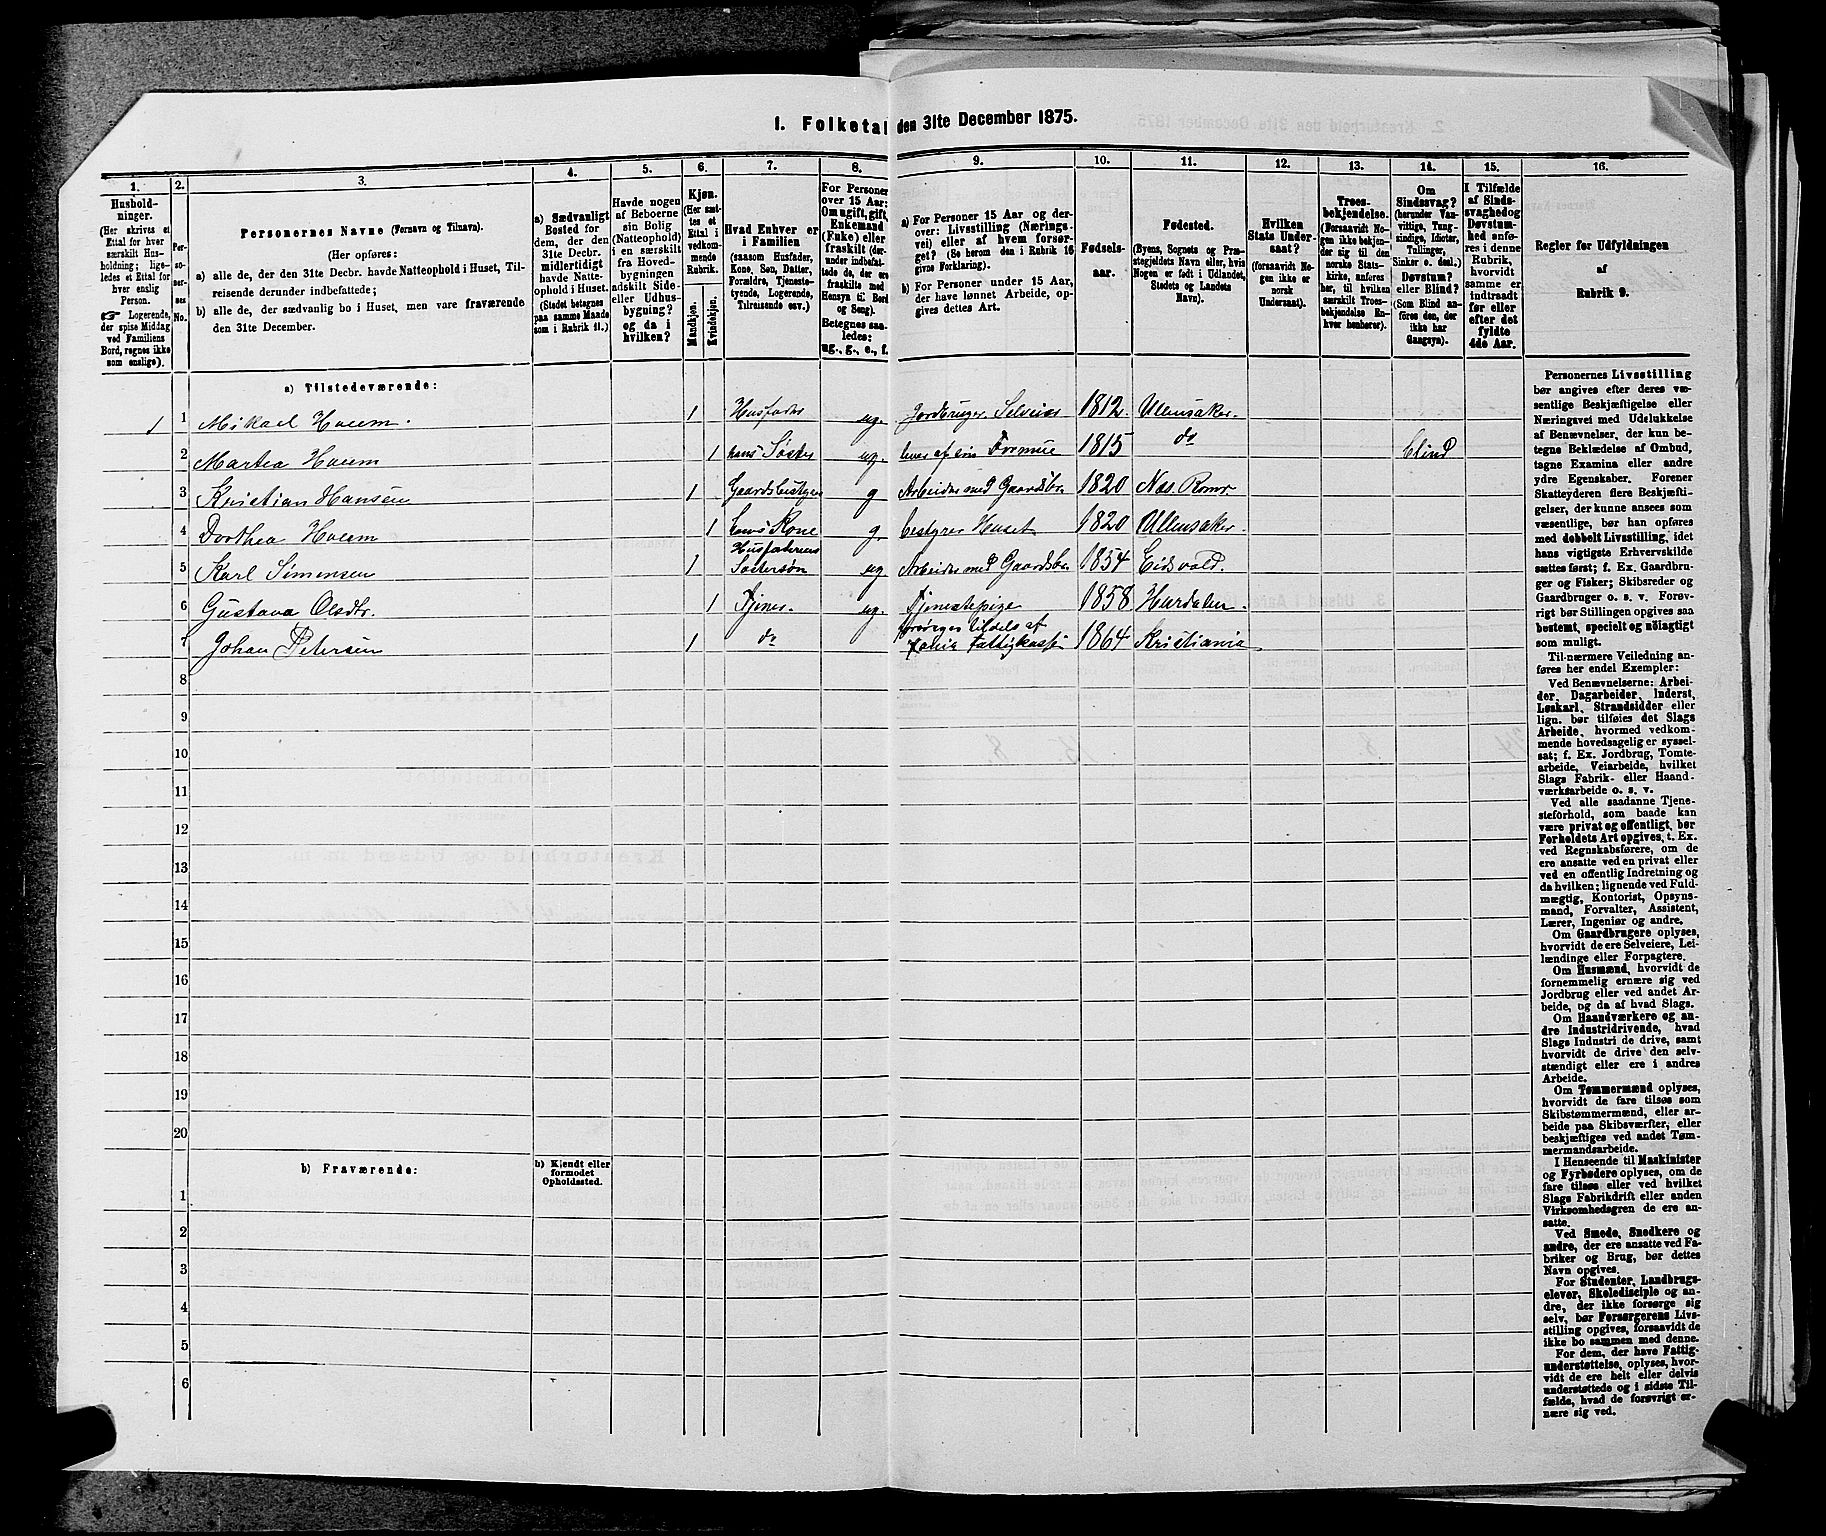 1. Folketal den 31te December 1875.
1. 2. 3. 4. 5. 6. 7. 8. 9. 10. 11. 12. 13. 14. 15. 16.
Hushold-
ninger.
(Her skrives et
Ettal for hver
særskilt Hus-
holdning; lige-
ledes et Ettal for
enslig
Person.
☞ Logerende,
der spise Middag
ved Familiens
Bord, regnes ikke
som enslige).
Per-
so-
ner-
nes
No.
Personernes Navne (Fornavn og Tilnavn).
(Her opføres:
a) alle de, der den 31te Decbr. havde Natteophold i Huset, Til-
reisende derunder indbefattede;
b) alle de, der sædvanlig bo i Huset, men vare fraværende
den 31te December.
a) Sædvanligt
Bosted for
dem, der den
31te Decbr.
midlertidigt
havde Natte-
ophold i Huset.
(Stedet betegnes
paa samme Maade
som i Rubrik 11.)
Havde nogen
af Beboerne
sin Bolig
(Natteophold)
i en særskilt
fra Hoved-
bygningen
adskilt Side-
eller Udhus-
bygning?
og da i
hvilken?
Kjøn.
(Her sæt-
tes et
Ettal i
vedkom-
mende
Rubrik.
Mandkjøn.
Kvindekjøn.
Hvad Enhver er
i Familien
(saasom Husfader,
Kone, Søn, Datter,
Forældre, Tjeneste-
tyende, Logerende,
Tilreisende osv.)
For Personer
over 15 Aar:
Om ugift, gift,
Enkemand
(Enke) eller
fraskilt (der-
under indbefat-
tede de, der ere
fraskilte med
Hensyn til Bord
og Seng).
Betegnes saa-
ledes:
ug., g., e., f.
a) For Personer 15 Aar og der-
over: Livsstilling (Nærings-
vei) eller af hvem forsør-
get? (Se herom den i Rubrik 16
givne Forklaring).
b) For Personer under 15 Aar,
der have lønnet Arbeide, op-
gives dettes Art.
Fødsels-
aar.
Fødested.
(Byens, Sognets og Præ-
stegjeldets Navn eller, hvis
Nogen er født i Udlandet,
Stedets og Landets
Navn).
Hvilken
Stats Under-
saat?
(forsaavidt No-
gen ikke er
norsk
Undersaat).
Troes-
bekjendelse.
(Forsaavidt No-
gen ikke bekjen-
der sig til den
norske Stats-
kirke, anføres
her, til hvilken
særskilt Troes-
bekjendelse En-
hver henhører).
Om
Sindssvag?
(herunder Van-
vittige, Tung-
sindige, Idioter,
Tullinger,
Sinker o. desl.)
Døvstum?
eller Blind?
(Som Blind an-
føres den, der
ikke har
Gangsyn).
I Tilfælde
af Sinds-
svaghed og
Døvstum-
hed anfø-
res i denne
Rubrik,
hvorvidt
samme er
indtraadt
før eller
efter det
fyldte
4de Aar.
Regler for Udfyldningen
af
Rubrik 9.
a) Tilstedeværende:
1 1 Mikael Hveem. 1 Husfader ug. Jordbruger Selveier 1812. Ullensaker.
2 Martea Hveem 1 hans Søster ug. lever af sin Formue 1815 do blind
3 Kristian Hansen 1 Gaardsbestyrer g Arbeider med Gaardsbr. 1820 Næs. Romr
4 Dorthea Hveem 1 hans Kone g. bestyrer Huset 1820 Ullensaker.
5 Karl Simensen 1 Husfaderens Søstersøn ug Arbeider med Gaardsbr. 1854 Eidsvold.
6 Gustava Olsdtr. 1 Tjener. ug. Tjenestepige 1858 Hurdalen.
7 Johan Petersen 1 do forsørges tildels af Fattigkasse 1864 Kristiania
8
9
10
11
12
13
14
15
16
17
18
19
20
b) Fraværende:
b) Kjendt eller
formodet
Opholdssted.
1
2
3
4
5
6
Personernes Livsstilling
bør angives efter deres væ-
sentlige Beskjæftigelse eller
Næringsvei med Udelukkelse
af Benævnelser, der kun be-
tegne Beklædelse af Ombud,
tagne Examina eller andre
ydre Egenskaber. Forener
Skatteyderen flere Beskjæfti-
gelser, der kunne ansees som
væsentlige, bør han opføres
med dobbelt Livsstilling, idet
hans vigtigste Erhvervskilde
sættes først; f. Ex. Gaardbru-
ger og Fisker; Skibsreder og
Gaardbruger o. s. v. Forøv-
rigt bør Stillingen opgives saa
bestemt, specielt og nøiagtigt
som muligt.
Til nærmere Veiledning an-
føres her endel Exempler:
Ved Benævnelserne: Arbei-
der, Dagarbeider, Inderst,
Løskarl, Strandsidder eller
lign. bør tilføies det Slags
Arbeide, hvormed vedkom-
mende hovedsagelig er syssel-
sat; f. Ex. Jordbrug, Tomte-
arbeide, Veiarbeide, hvilket
Slags Fabrik- eller Haand-
værksarbeide o. s. v.
Ved alle saadanne Tjene-
steforhold, som baade kan
være privat og offentligt, bør
Forholdets Art opgives, t. Ex.
ved Regnskabsførere, om de
ere ansatte ved en privat eller
ved en offentlig Indretning og
da hvilken; lignende ved Fuld-
mægtig, Kontorist, Opsyns-
mand, Forvalter, Assistent,
Lærer, Ingeniør og andre.
Om Gaardbrugere oplyses,
hvorvidt de ere Selveiere, Lei-
lændinge eller Forpagtere.
Om Husmænd, hvorvidt de
fornemmelig ernære sig ved
Jordbrug eller ved andet Ar-
beide, og da af hvad Slags.
Om Haandværkere og an-
dre Industridrivende, hvad
Slags Industri de drive, samt
hvorvidt de drive den selv-
stændigt eller ere i andres
Arbeide.
Om Tømmermænd oplyses,
hvorvidt de fare tilsøs som
Skibstømmermænd, eller ar-
beide paa Skibsværfter, eller
beskjæftiges ved andet Tøm-
mermandsarbeide.
I Henseende til Maskinister
og Fyrbødere oplyses, om de
fare tilsøs eller ved hvilket
Slags Fabrikdrift eller anden
Virksomhedsgren de ere an-
satte.
Ved Smede, Snedkere og
andre, der ere ansatte ved Fa-
briker og Brug, bør dettes
Navn opgives.
For Studenter, Landbrugs-
elever, Skoledisciple og an-
dre, der ikke forsørge sig
selv, bør Forsørgerens Livs-
stilling opgives, forsaavidt de
ikke bo sammen med denne.
For dem, der have Fattig-
understøttelse, oplyses, hvor-
vidt de ere helt eller delvis
understøttede og i sidste Til-
fælde, hvad de forøvrigt er-
nære sig ved.